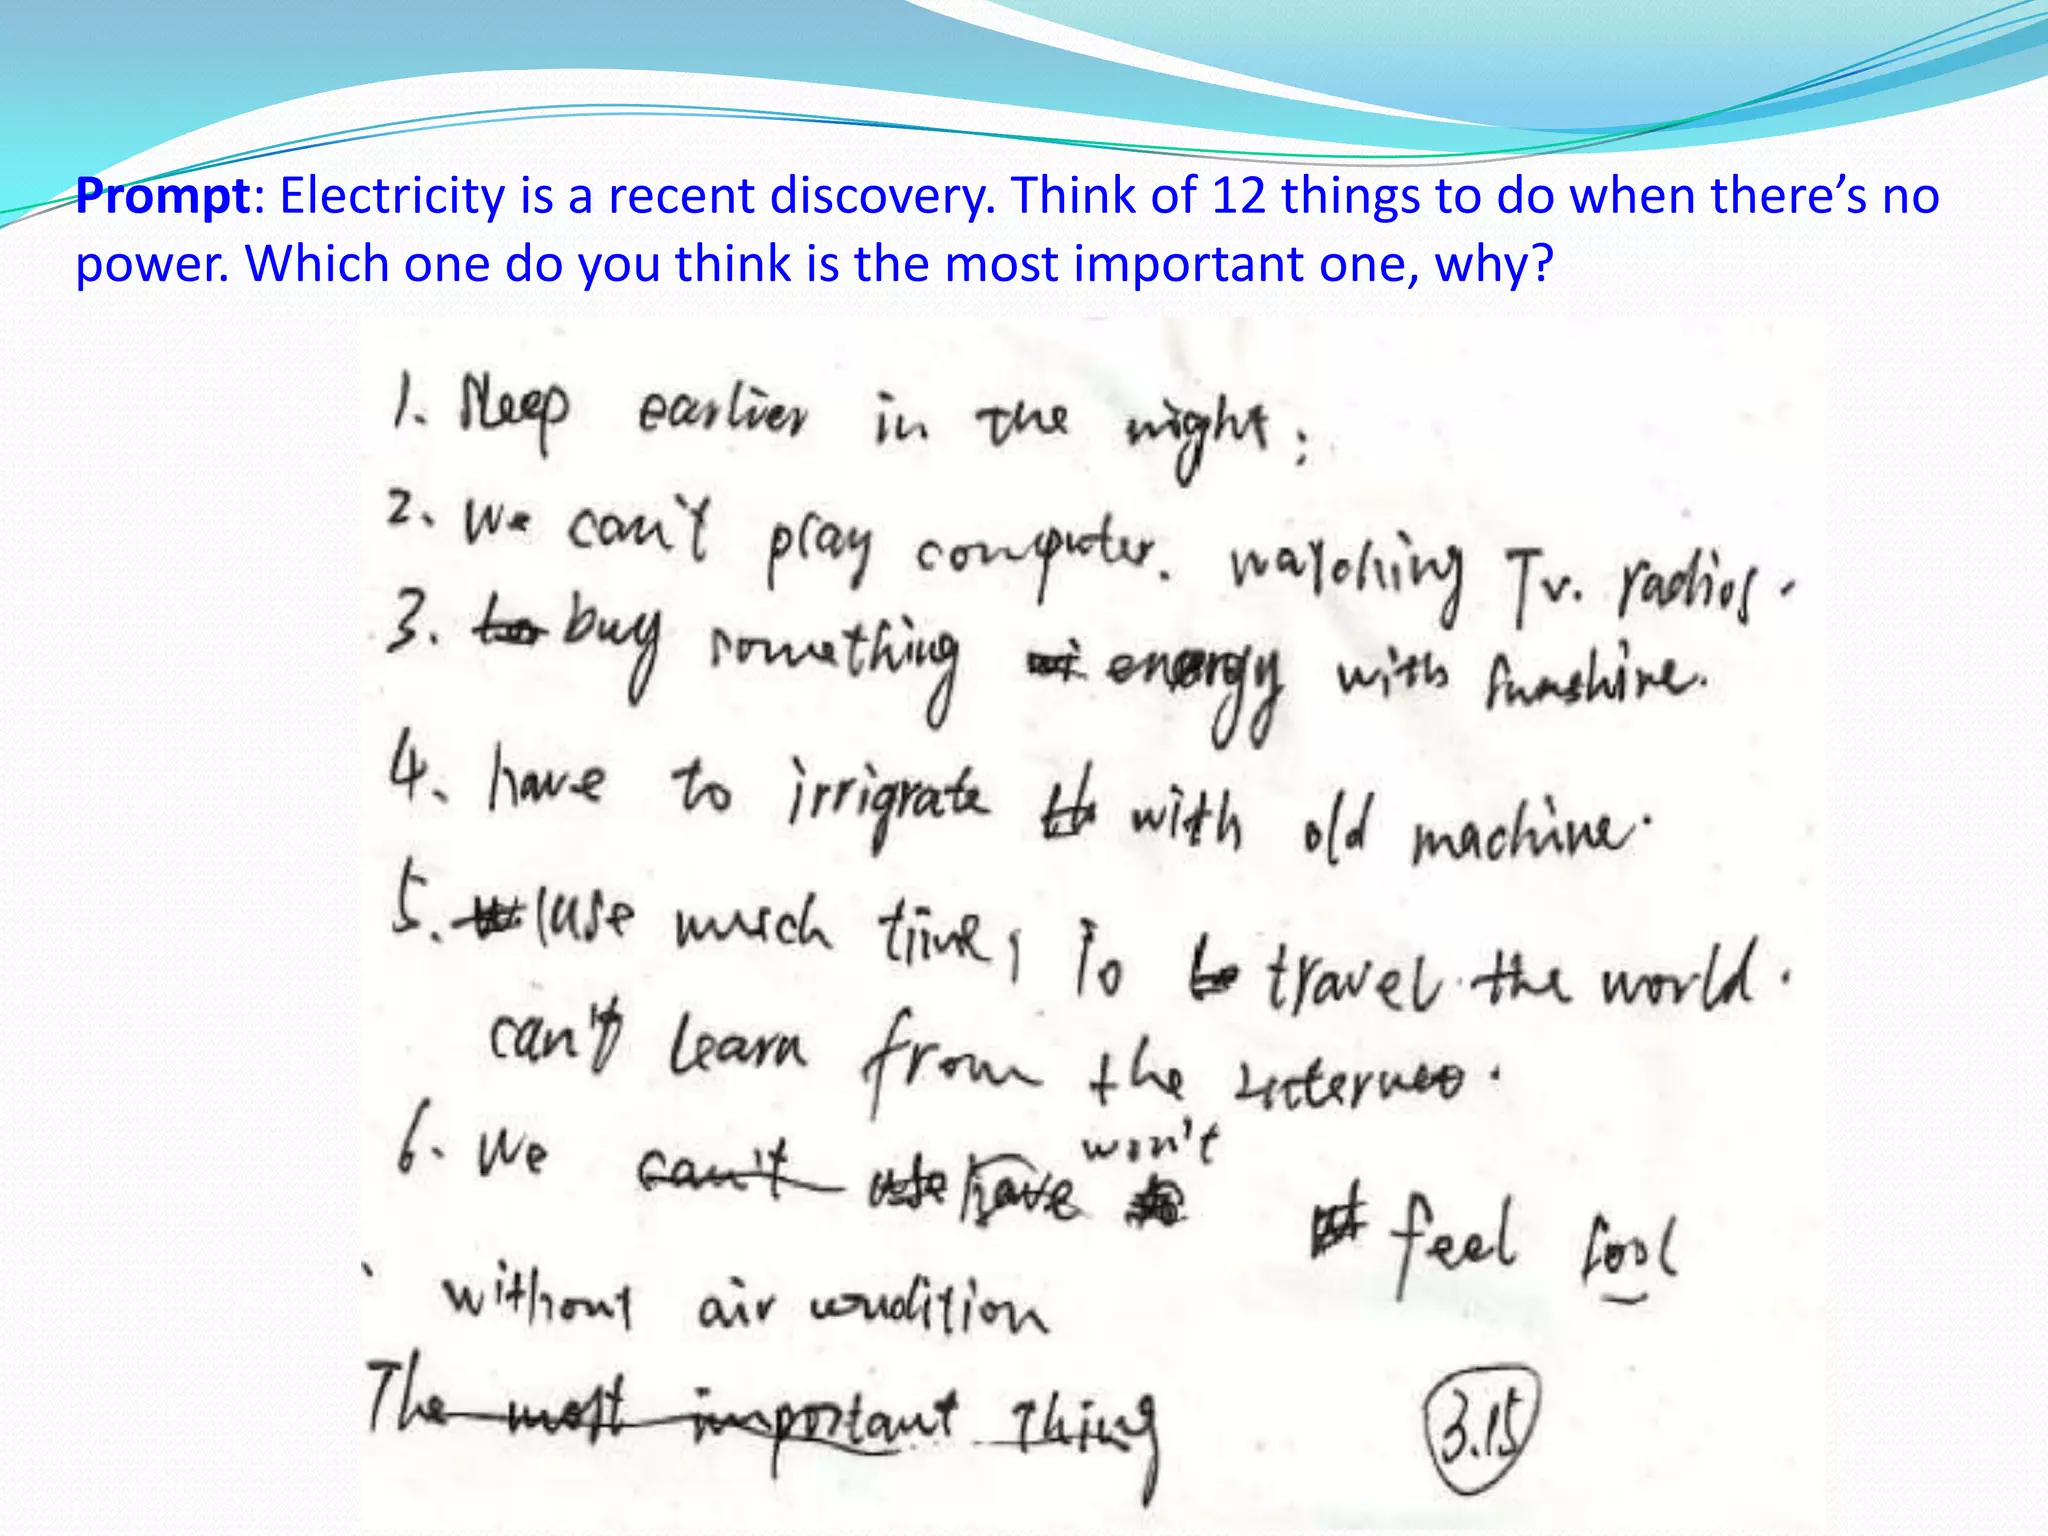 Prompt: Electricity is a recent discovery. Think of 12 things to do when there’s no
power. Which one do you think is the most important one, why?
1. Sleep earlier in the night;
2. We can't play computer. watching Tv. radios.
3. to buy something energy with sunshine.
4. have to irrigrate with old machine.
5. use much time, to travel the world.
can't learn from the internet.
6. We can't use have won't feel cool
without air condition
The most important thing
3.15